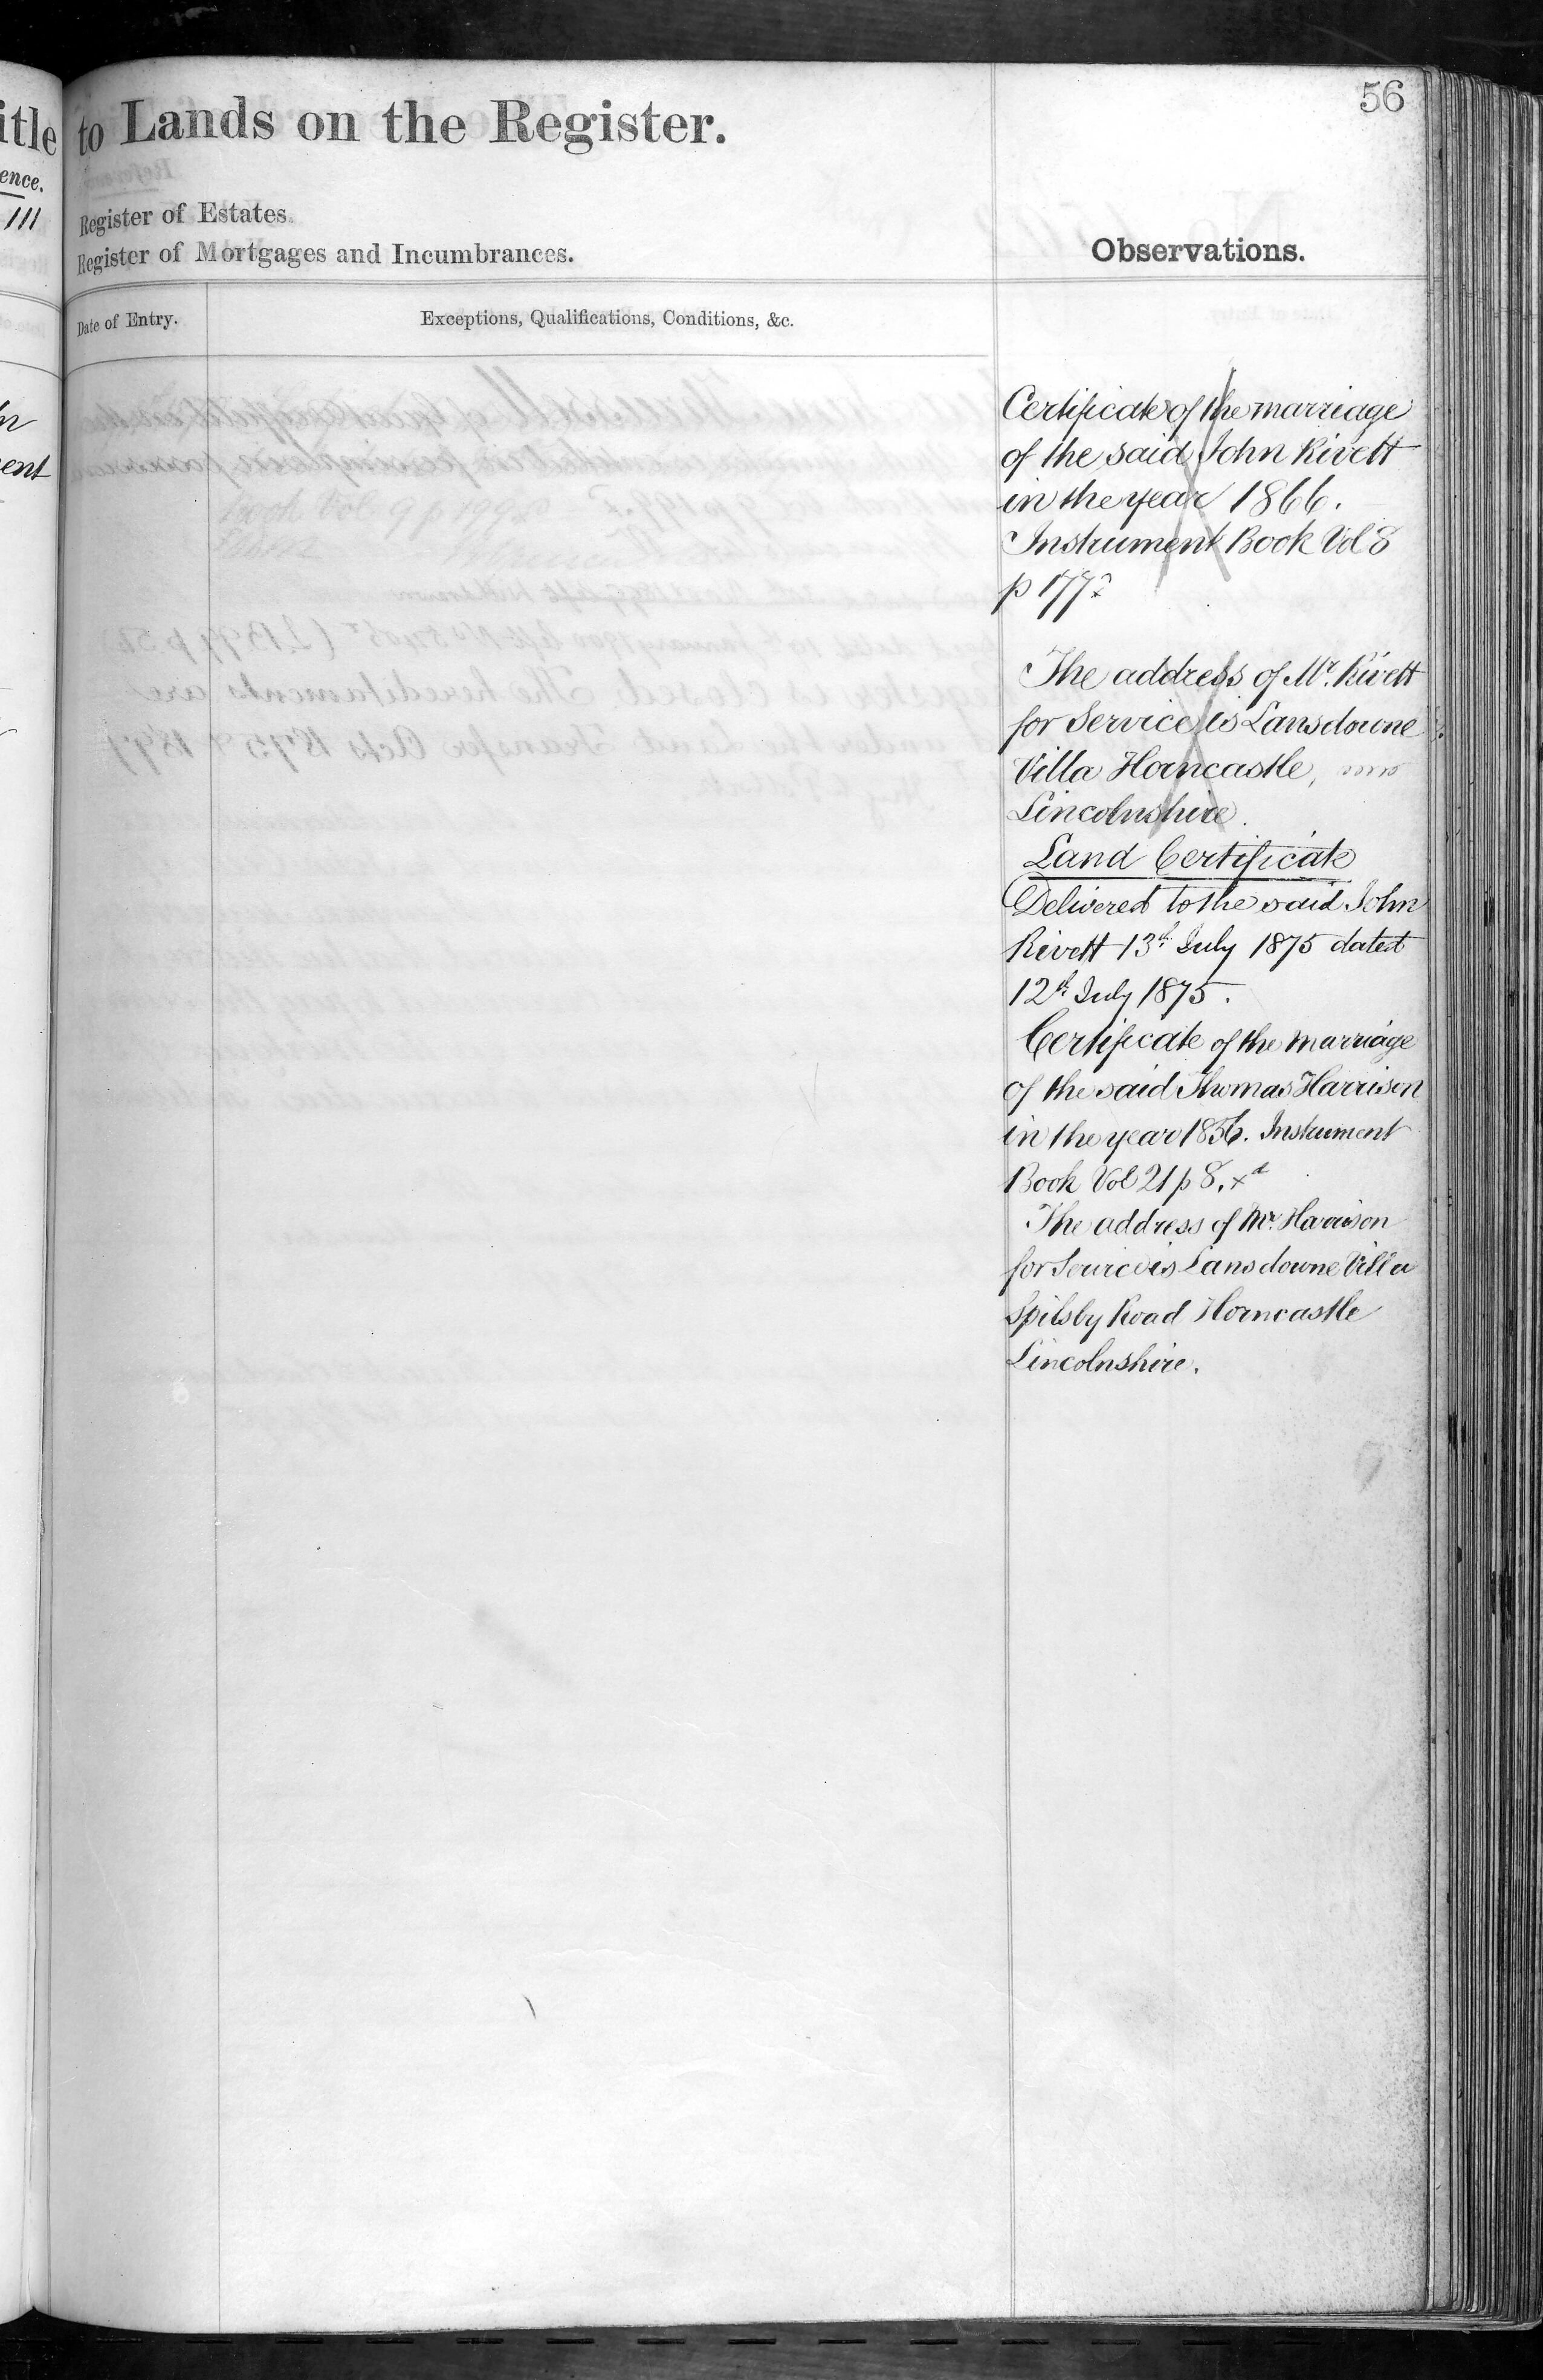 56
itle to Lands on the Register.
ence.
111
Register of Estates.
Register of Mortgages and Incumbrances.
Observations.
Date of Entry.
Exceptions, Qualifications, Conditions, &c.
ent
Certificate of the marriage
of the said John Rivett
in the year 1866.
Instrument Book Vol 8
p 177
The address of Mr. Rivett
for Service is Lansdowne
Villa Horncastle,
Lincolnshire.
Land Certificate
Delivered to the said John
Rivett 13th July 1875 dated
12th July 1875.
Certificate of the marriage
of the said Thomas Harrison
in the year 1856. Instrument
Book Vol 21 p 8.
The address of Mr. Harrison
for Service is Lansdowne Villa
Spilsby Road Horncastle
Lincolnshire.